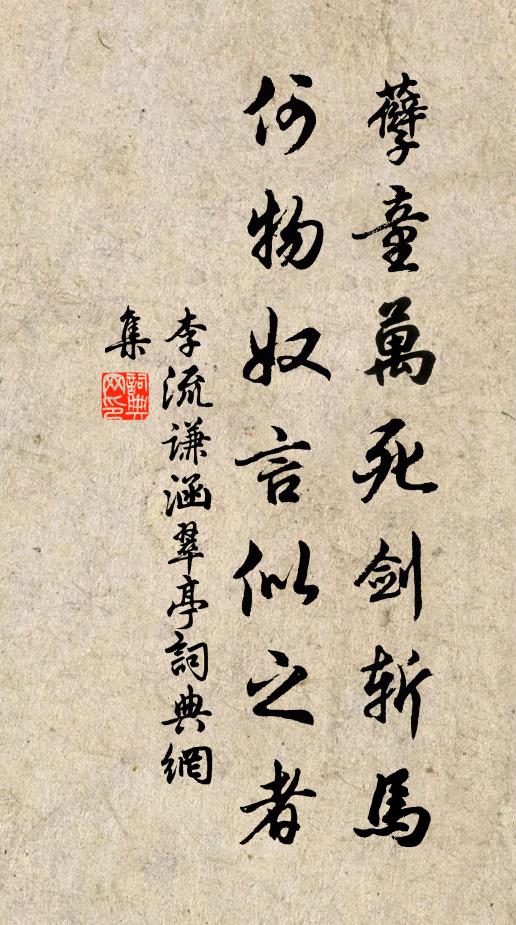 孽童萬死劍斬馬
何物奴言似之者
李流謙涵翠亭詞典網
集
詞典
网印